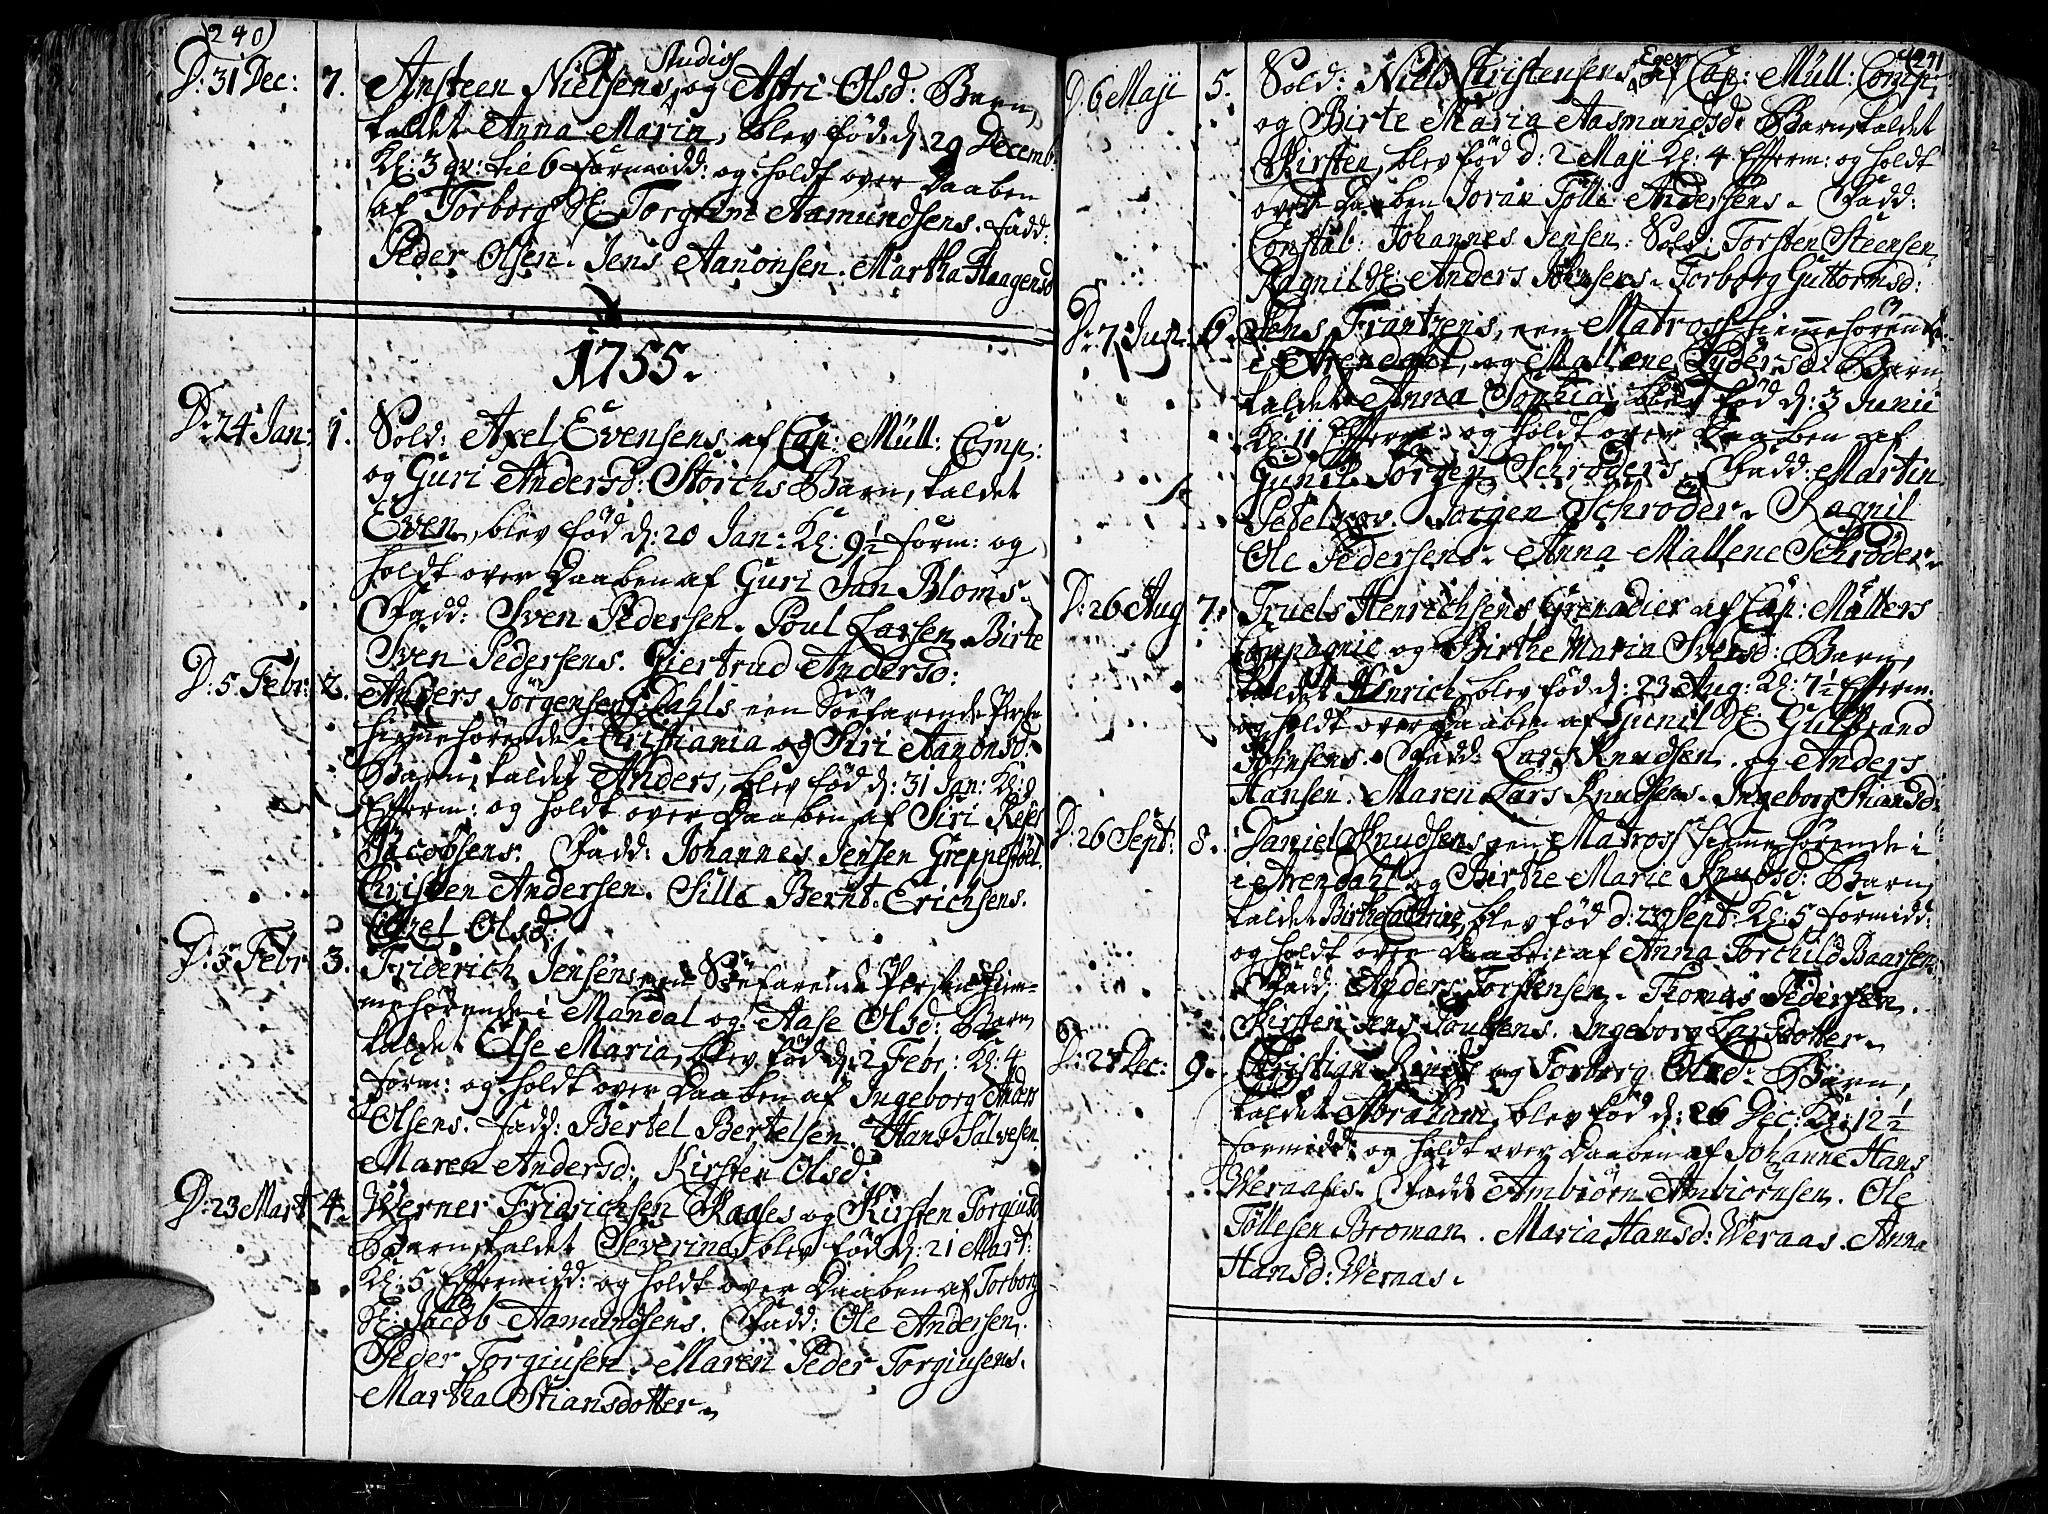 240)
D: 31 Dec: 7. Ansteen Nielsens Studios og Astri Olsd: Barn,
kaldet Anna Marin, blev fød d: 29 Decemb:
Kl: 3 qv: til 6 formidd: og holdt over Daaben
af Torborg Torgrim Aamundsens. Fadd:
Peder Olsen. Jens Aanonsen. Martha Haagensd
1755.
D: 24 Jan: 1. Sold: Axel Evensens af Cap: Müll: Comp:
og Guri Andersd: Storchs Barn, kaldet
Even, blev fød d: 20 Jan: Kl: 9½ form: og
holdt over Daaben af Guri Jan Bloms.
Fadd: Sven Pedersen. Poul Larsen. Birte
Sven Pedersens. Giertrud Andersd:
D: 5 Febr: 2. Anders Jörgensens Dahls een Söefarende Person
hiemmehörende i Christiania og Siri Aanonsd:
Barn, kaldet Anders, blev fød d: 31 Jan: Kl: 9
Efterm: og holdt over Daaben af Siri
Jacobsens. Fadd: Johannes Jensen Greppestöel.
Christen Andersen. Sille Bernt Erichsens.
Axel Olsd:
D: 5 Febr 3. Friderich Jensens een Söefarende Person hiem-
mehörende i Mandal og Aase Olsd: Barn
kaldet Else Maria, blev fød d: 2 Febr: Kl: 4
form: og holdt over Daaben af Ingeborg Anders
Olsens. Fadd: Bertel Bertelsen. Hans Salvesen
Maren Andersd: Kirsten Olsd:
D: 23 Mart 4. Werner Fridrichsen Kaases og Kirsten Torgiusd
Barn, kaldet Severine, blev fød d: 21 Mart:
Kl: 5 Eftermidd: og holdt over Daaben af Torborg
Jacob Aamundsens. Fadd: Ole Andersen.
Peder Torgiusen. Maren Peder Torgiusens.
Martha Stiansdotter.
(241
D. 6 Maji 5. Sold: Niels Christensens Eger af Cap: Müll: Comp:
og Birte Maria Aasmundsd: Barn, kaldet
Kirsten, blev fød d: 2 Maji Kl: 4 Efterm: og holdt
over Daaben Joran Tölli Andersens. Fadd:
Constab: Johannes Jensen. Sold: Torsten Steensen
Ragnil Anders Johnsens. Torborg Guttormsd:
D: 7 Jun: 6. Jens Frantzens, een Matross hiemmehörende
i Arendahl, og Mallene Pydersd: Barn
kaldet Anna Sophia, blev fød d: 3 Junii
Kl: 11 Efterm: og holdt over Daaben af
Gunil Jörgen Schröders. Fadd: Martin
Jörgen Schröder. Ragnil
Ole Pedersens. Anna Mallene Schröder.
D: 26 Aug 7. Truels Henrichsens Grenadier af Cap: Müllers
Compagnie og Birthe Maria Svensd: Barn,
kaldet Henrich, blev fød d: 23 Aug: Kl: 7½ Efterm.
og holdt over Daaben af Gunil Gulbrand
Johnsens. Fadd: Lars Knudsen. og Anders
Hansen. Maren Lars Knudsens. Ingeborg Stiansd:
D. 26 Sept: 8. Daniel Knudsens, een Matross hiemmehörende i
i Arendahl og Birthe Marie Knudsd: Barn,
kaldet Birthe Cathrine, blev fød d: 23 Sept: Kl: 5 formidd:
og holdt over Daaben af Anna Torchild Baarsens
Fadd: Anders Torstensen. Thomas Pedersen.
Kirsten Jens Poulsens. Ingeborg Larsdotter.
D: 27 Dec: 9. Christian og Torborg Olsd: Barn,
kaldet Abraham, blev fød d: 26 Dec: Kl: 12½
formidd: og holdt over Daaben af Johanne Hans
Weraases. Fadd: Ambiörn Ambiörnsen. Ole
Töllesen Broman. Maria Hansd: Weraas. Anna
Hansd: Weraas.